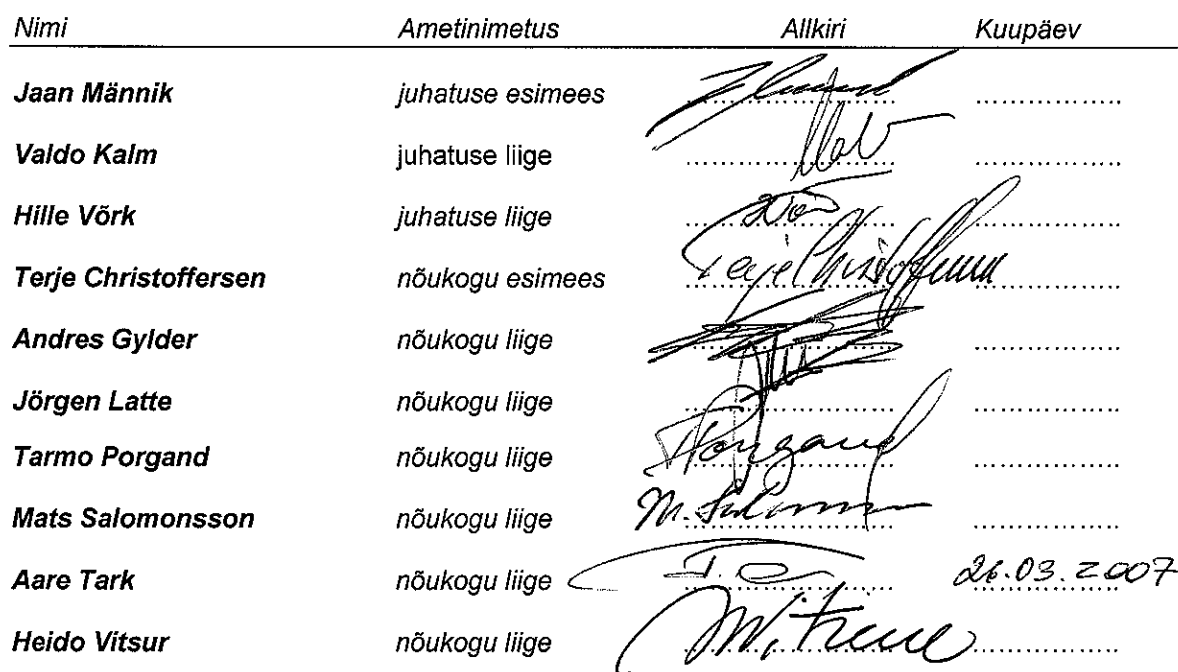 Nimi Ametinimetus Allkiri Kuupäev
Jaan Männik juhatuse esimees .................... ..................
Valdo Kalm juhatuse liige .................... ..................
Hille Võrk juhatuse liige .................... ..................
Terje Christoffersen nõukogu esimees Terje Christoffersen ..................
Andres Gylder nõukogu liige .................... ..................
Jörgen Latte nõukogu liige .................... ..................
Tarmo Porgand nõukogu liige TPorgand ..................
Mats Salomonsson nõukogu liige M. .................... ..................
Aare Tark nõukogu liige .................... 26.03.2007
Heido Vitsur nõukogu liige .................... ..................